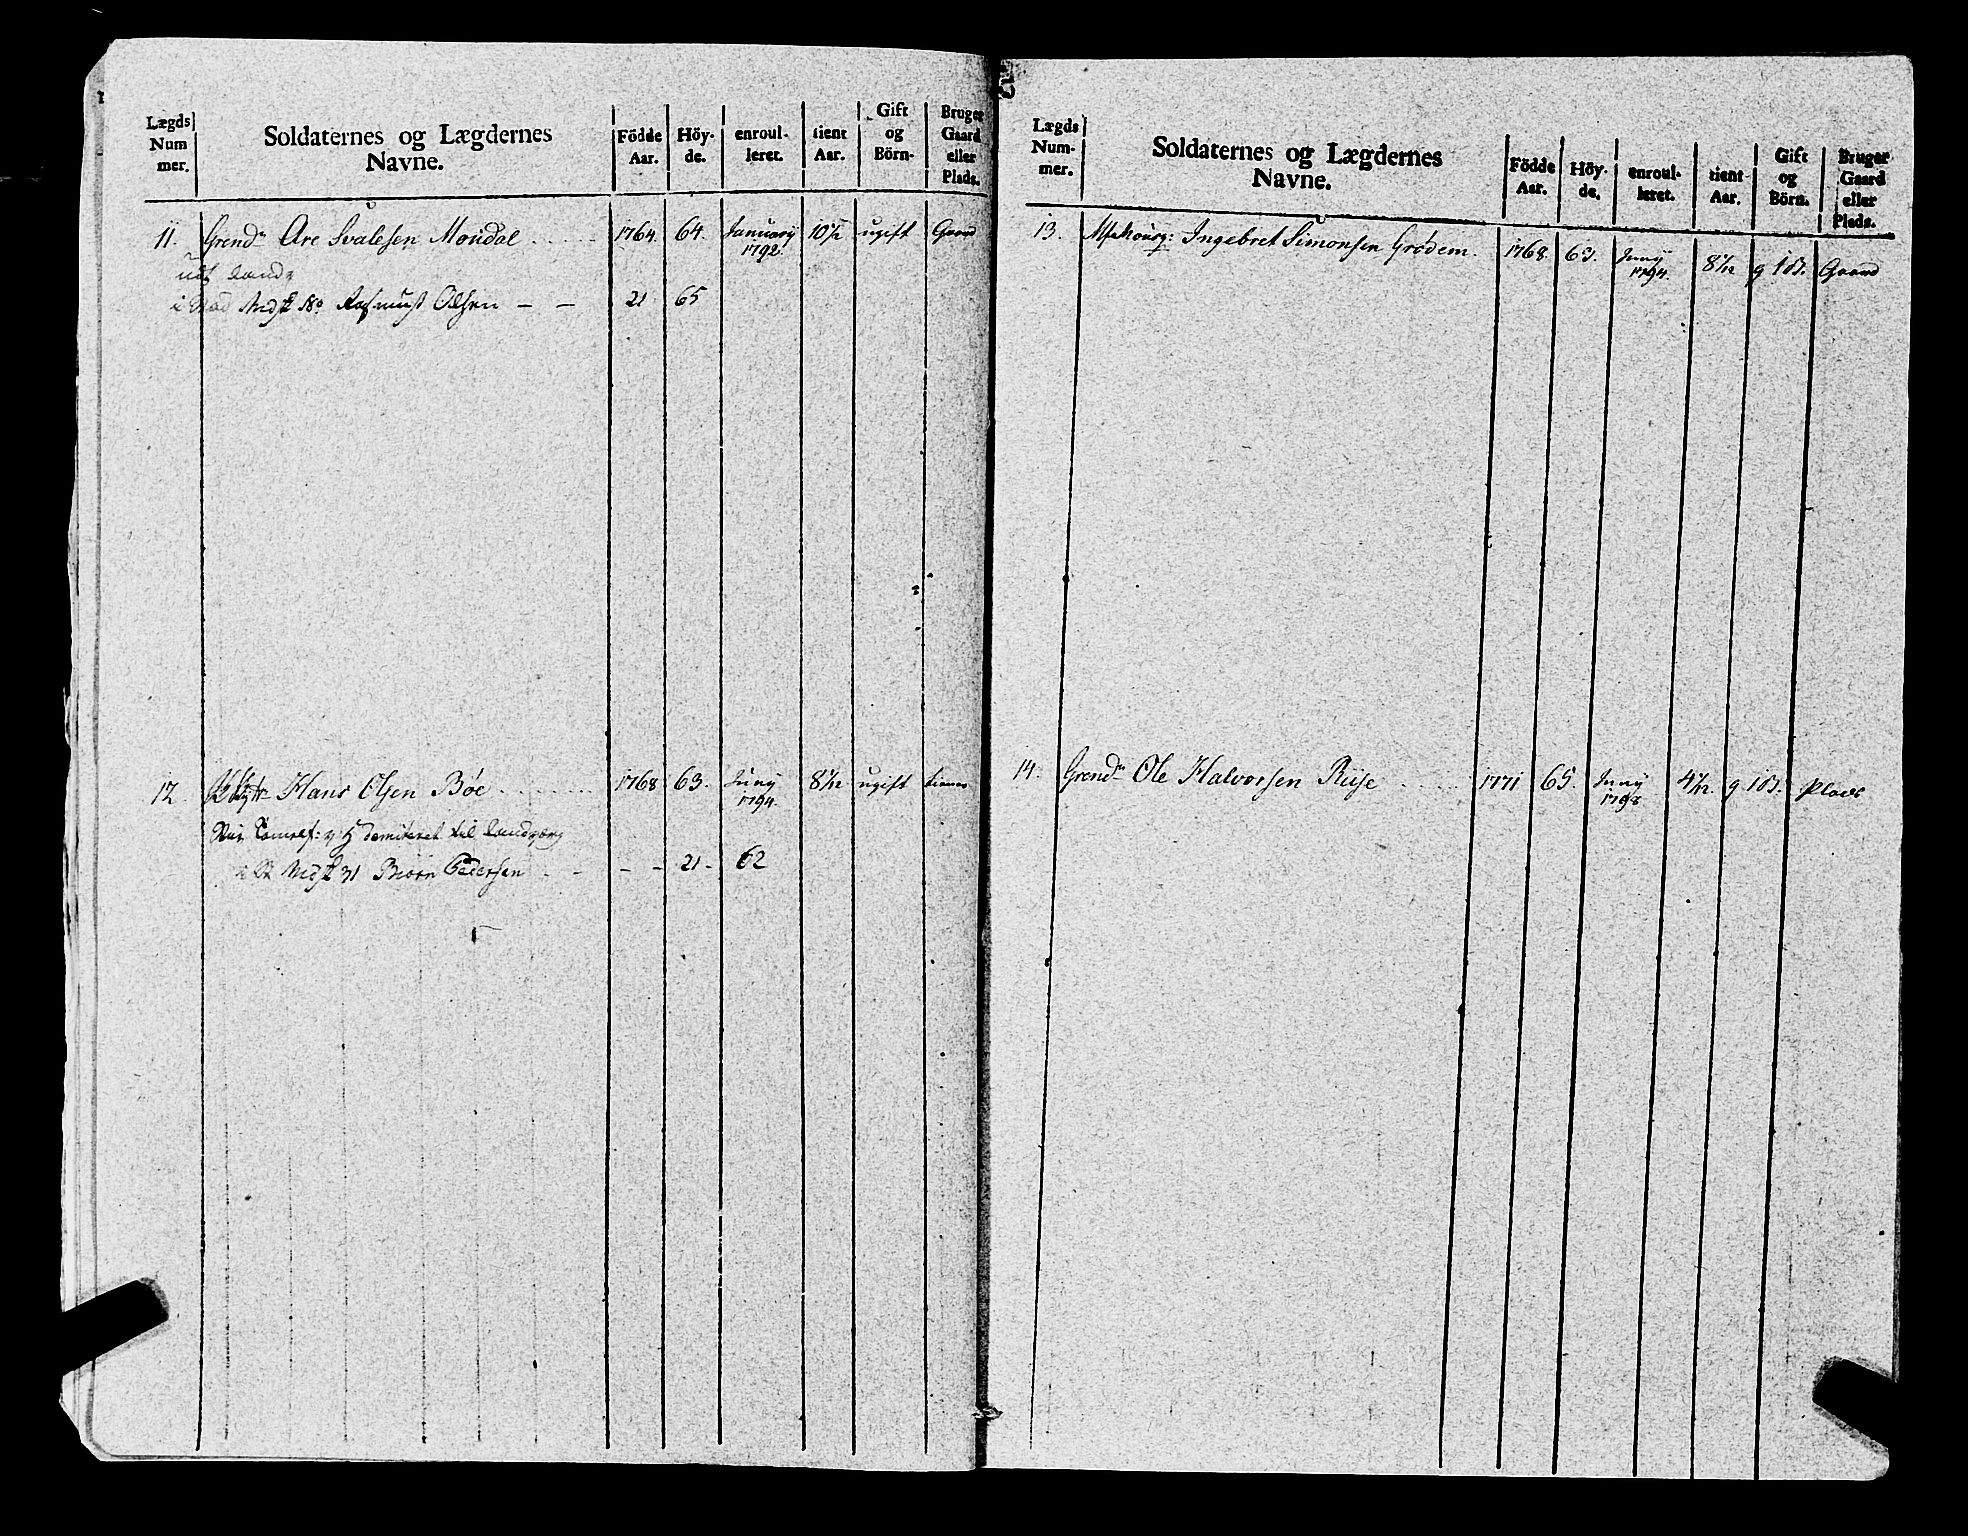 Lægds Num mer.
Soldaternes og Lægdernes Navne.
Födde Aar.
Höy- de.
enroul- leret.
tient Aar.
Gift og Börn-
Bruger Gaard eller Plads.
11. Grendr Are Svalesen Mondal 1764. 64. January 1792. 10 1/2 ugift Gaard
i Rasmus Olsen — — 21 65
12. Hans Olsen Böe 1768 63. Juny 1794. 8 1/12 ugift tiener
demiteret til Landværg
Biörn Pedersen - - - - 21 - 62
Lægds Num- mer.
Soldaternes og Lægdernes Navne.
Födde Aar.
Höy- de.
enroul- leret.
tient Aar.
Gift og Börn.
Bruger Gaard eller Plads.
13. Ingebret Simonsen Grödem. 1768 63. Juny 1794. 8 1/12 g 1 B. Gaard
14. Grendr Ole Halvorsen Riise 1771 65. Juny 1798 4 1/12. g 1 B. Plads